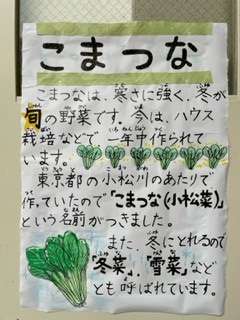 こまつな
こまつなは、寒さに強く、冬が
旬の野菜です。今は、ハウス
栽培などで一年中作られて
います。
東京都の小松川のあたりで
作っていたので「こまつな(小松菜)」
という名前がつきました。
また、冬にとれるので
「冬菜」、「雪菜」など
とも呼ばれています。